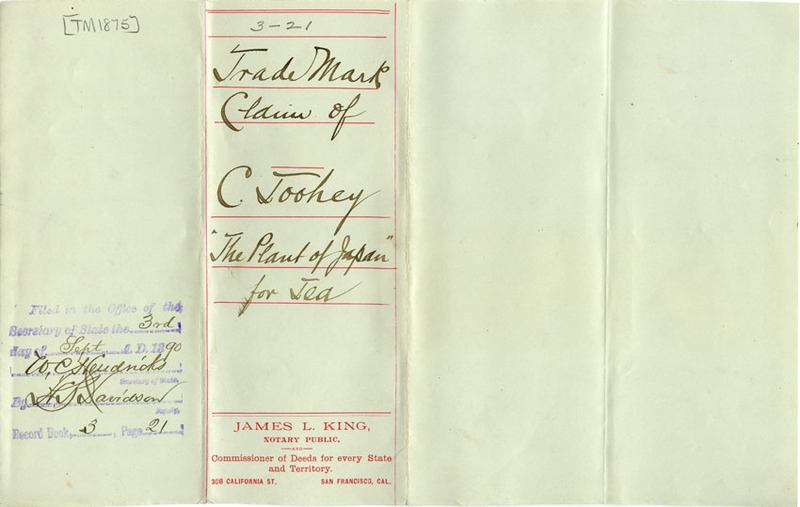 [TM1875]
3-21
Trade Mark
Claim of
C. Toohey
"The Plant of Japan"
for Tea
Filed in the Office of the
Secretary of State the 3rd
day of Sept A. D. 1890
W. C. Hendricks
Secretary of State.
By Davidson
Deputy.
Record Book 3, Page 21
JAMES L. KING,
NOTARY PUBLIC,
—AND—
Commissioner of Deeds for every State
and Territory.
308 CALIFORNIA ST. SAN FRANCISCO, CAL.